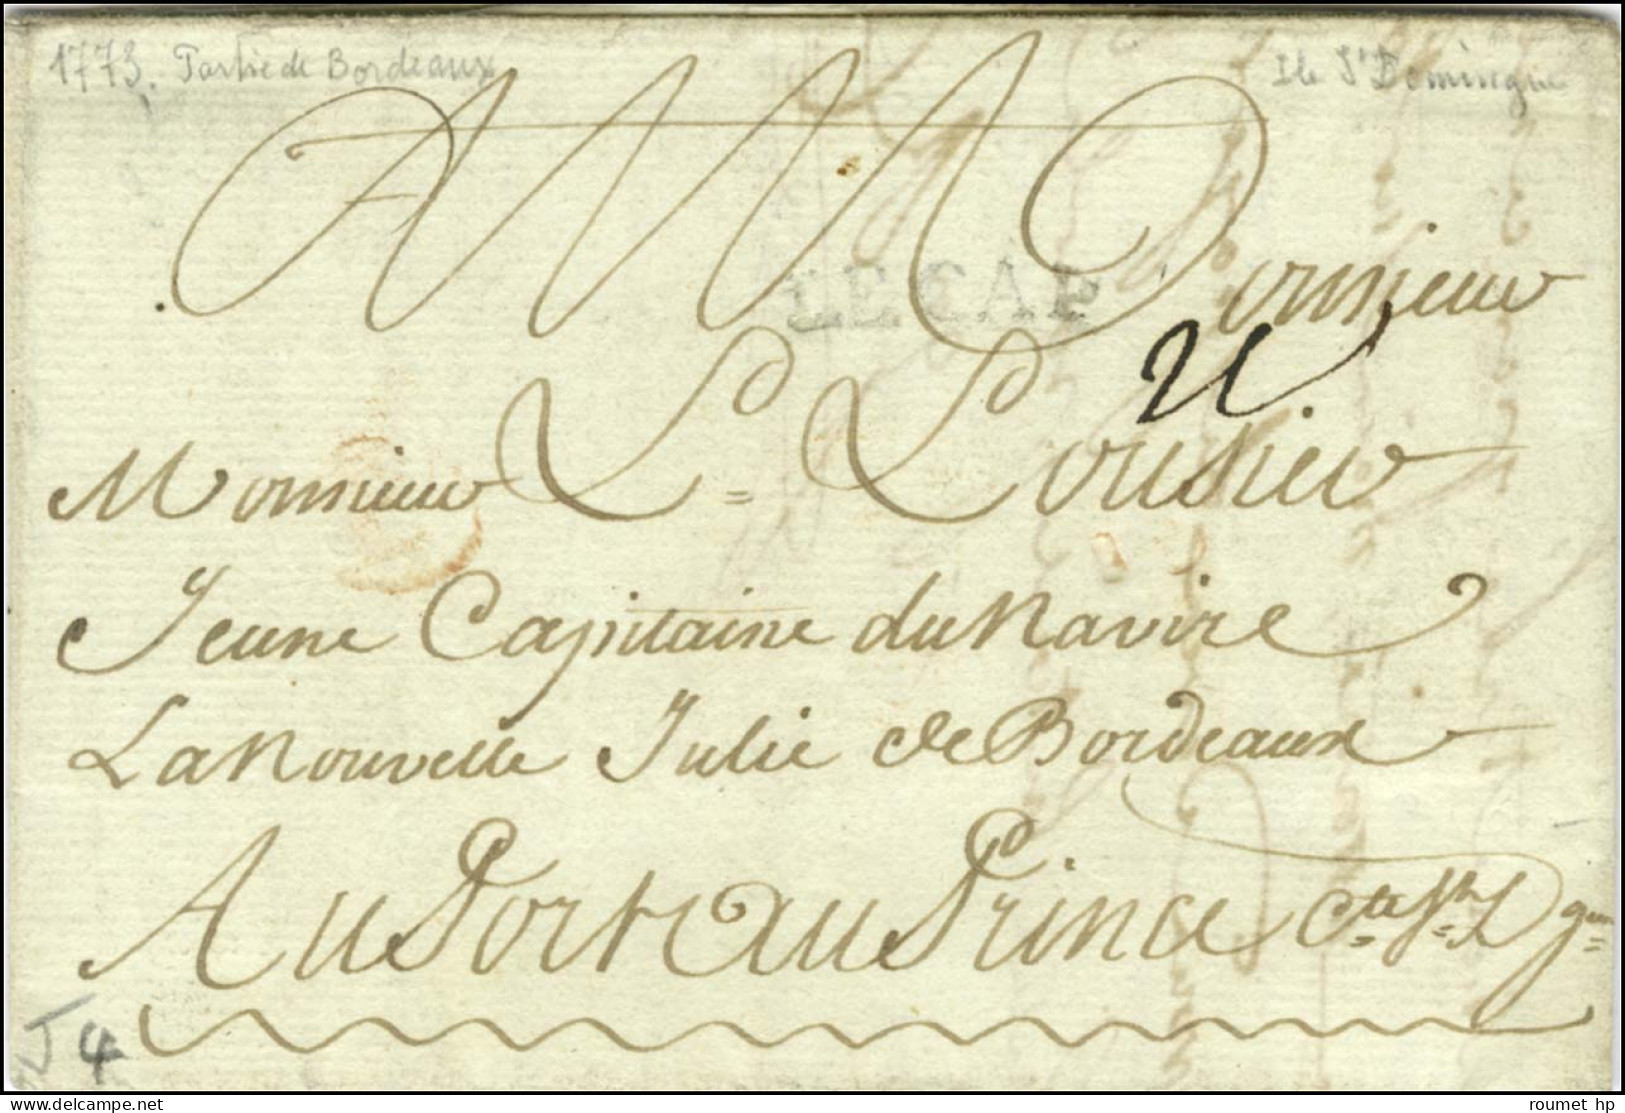 1773. Partie de Bordeaux
Ile St Domingue
A Monsieur
LE CAP
Monsieur L. =
Jeune Capitaine du Navire
La Nouvelle Julie de Bordeaux
Au Port au Prince Cte St Dgue
J 4
delcampe.net
roumet_hp